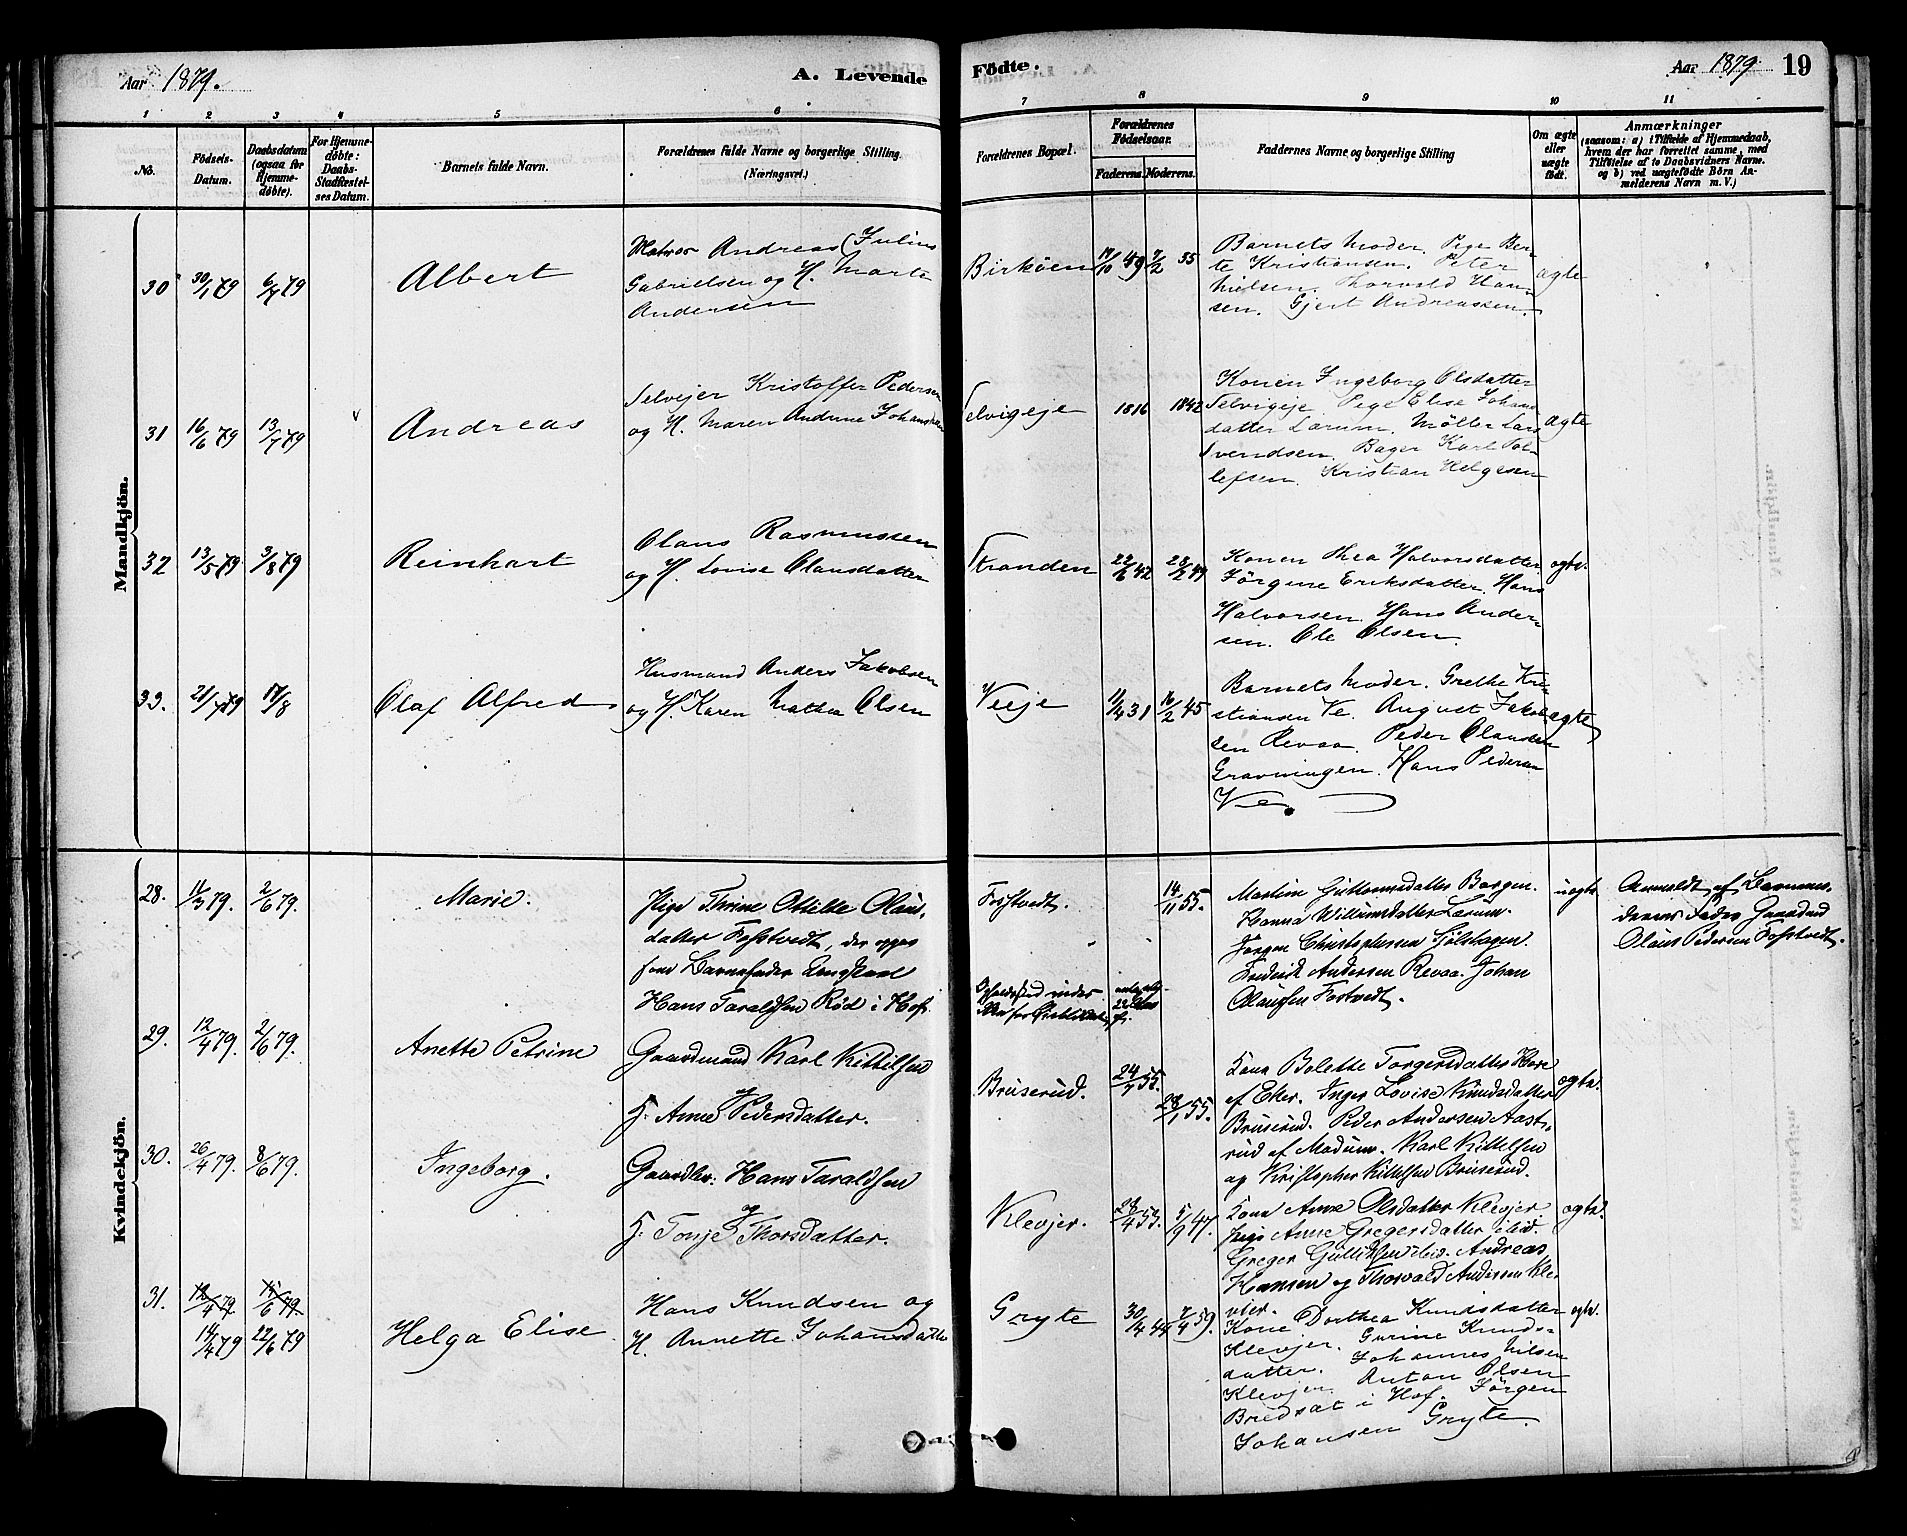 Aar 1879.
A. Levende
Födte.
Aar 1879
19
1 2 3 4 5 6 7 8 9 10 11
No.
Födsels-Datum.
Daabsdatum (ogsaa for Hjemme-döbte).
For Hjemme-döbte: Daabs-Stadfæstel-ses Datum.
Barnets fulde Navn.
Forældrenes fulde Navne og borgerlige Stilling.
(Næringsvei.)
Forældrenes Bopæl.
Forældrenes Födselsaar.
Faderens. Moderens.
Faddernes Navne og borgerlige Stilling
Om ægte eller uægte født.
Anmærkninger
(saasom: a) i Tilfælde af Hjemmedaab,
hvem der har forrettet samme, med
Tilföielse af to Daabsvidners Navne.
og b) ved uægtefödte Börn An-
melderens Navn m. V.)
Mandkjön.
30 30/1 79 6/7 79
Albert
Matros Andreas (Julius
Gabrielsen og H. Marte
Andersen
Birköen
17/10 49 7/2 55
Barnets Moder. Pige Ber-
te Kristiansen. Peter
Nielsen. Thorvald Han-
sen. Gjert Andreassen.
ægte
31 16/6 79 13/7 79
Andreas
Selvejer Kristoffer Pedersen
og H. Maren Andrine Johansdatter
Selvigeje
1816 1842
Konen Ingeborg Olsdatter
Selvigeje. Pige Elise Johans
datter Lærum. Møller Lars
Svendsen. Bager Karl Tol-
lefsen. Kristian Helgesen
ægte
32 13/5 79 3/8 79
Reinhart
Olaus Rasmussen
og H. Lovise Olausdatter
Stranden
22/6 42 28/2 49
Konen Thea Halvorsdatter
Jørgine Eriksdatter. Hans
Halvorsen. Hans Ander-
sen. Ole Olsen.
ægte.
33. 21/7 79 17/8
Olaf Alfred
Husmand Anders Jakobsen
og H. Karen Mathea Olsen
Veeje
11/4 31 16/2 45
Barnets Moder. Grethe Kri-
stiansen Ve. August Jakob
sen Revaa. Peder Olausen
Gravningen. Hans Pedersen
Ve.
ægte
Kvindekjön.
28. 11/3 79. 2/6 79.
Marie.
Pige Thrine Otilte Olaus
datter Fosstvedt, der opgav
som Barnefader Ungkarl
Hans Taraldsen Rød i Hof
Fosstvedt.
14/11 55.
Martine Guttormsdatter Borgen.
Hanna Willumsdatter Lærum.
Jørgen Christophersen Sjölshagen.
Fredrik Andersen Revaa. Johan
Olausen Fostvedt.
uægte.
Anmeldt af Barnemo-
derens Fader Gaardmd
Olaus Pedersen Fosstvedt.
29. 12/4 79. 2/6 79.
Anette Petrine
Gaardmand Karl Kittilsen
og
H. Anne Pedersdatter.
Bruserud.
24/7 55. 28/1 55.
Kona Bolette Torgersdatter Hore
af Eker. Inger Lovise Knudsdatter
Bruserud. Peder Andersen Aast-
rud af Modum. Karl Kittilsen
og Kristopher Kittilsen Bruserud.
ægte.
30. 26/4 79. 8/6 79.
Ingeborg.
Gaardbr: Hans Taraldsen
og
H. Tonje Thorsdatter.
Klevjer.
28/4 53. 5/9 47.
Kona Anne Olsdatter Klevjer.
Pige Anne Gregersdatter ibid.
Greger Gulliksen ibid. Andreas
Hansen og Thorvald Andersen Kle
vjer.
ægte.
31. 12/4 79 15/6 79
14/4 79 22/6 79
Helga Elise
Hans Knudsen og
H. Annette Johansdatter
Gryte
30/4 44 7/4 59.
Kone Dorthea Knudsdatter
Klevjer. Gurine Knuds-
datter. Johannes Nilsen
Klevjer. Anton Olsen
Bredsat i Hof. Jörgen
Johansen Gryte.
ægte.